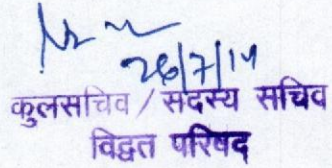 26/7/14
कुलसचिव / सदस्य सचिव
विद्वत परिषद